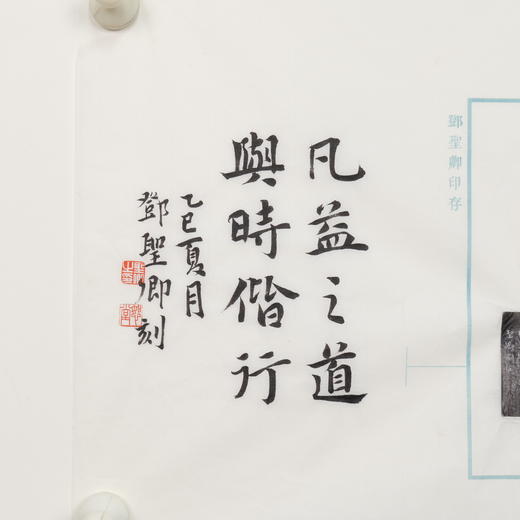 凡益之道
與時偕行
乙巳夏月
鄧聖卿刻
鄧聖卿印存